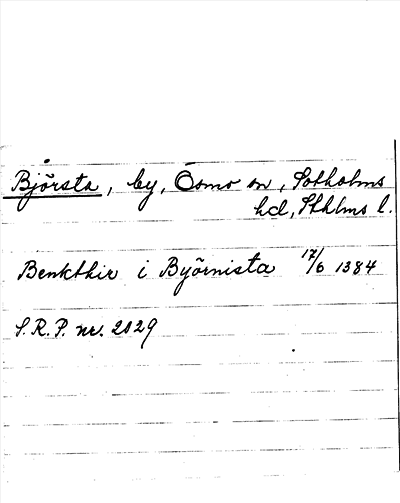 Björsta, by, Ösmo sn, Sotholms
hd, Sthlms l.
Benkthir i Byörnista 17/6 1384
S.R.P. nr. 2029